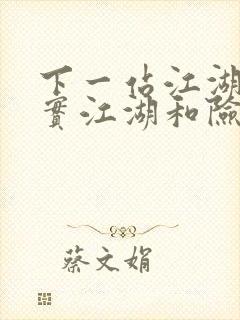 下一站江湖
實江湖和險
蔡文娟